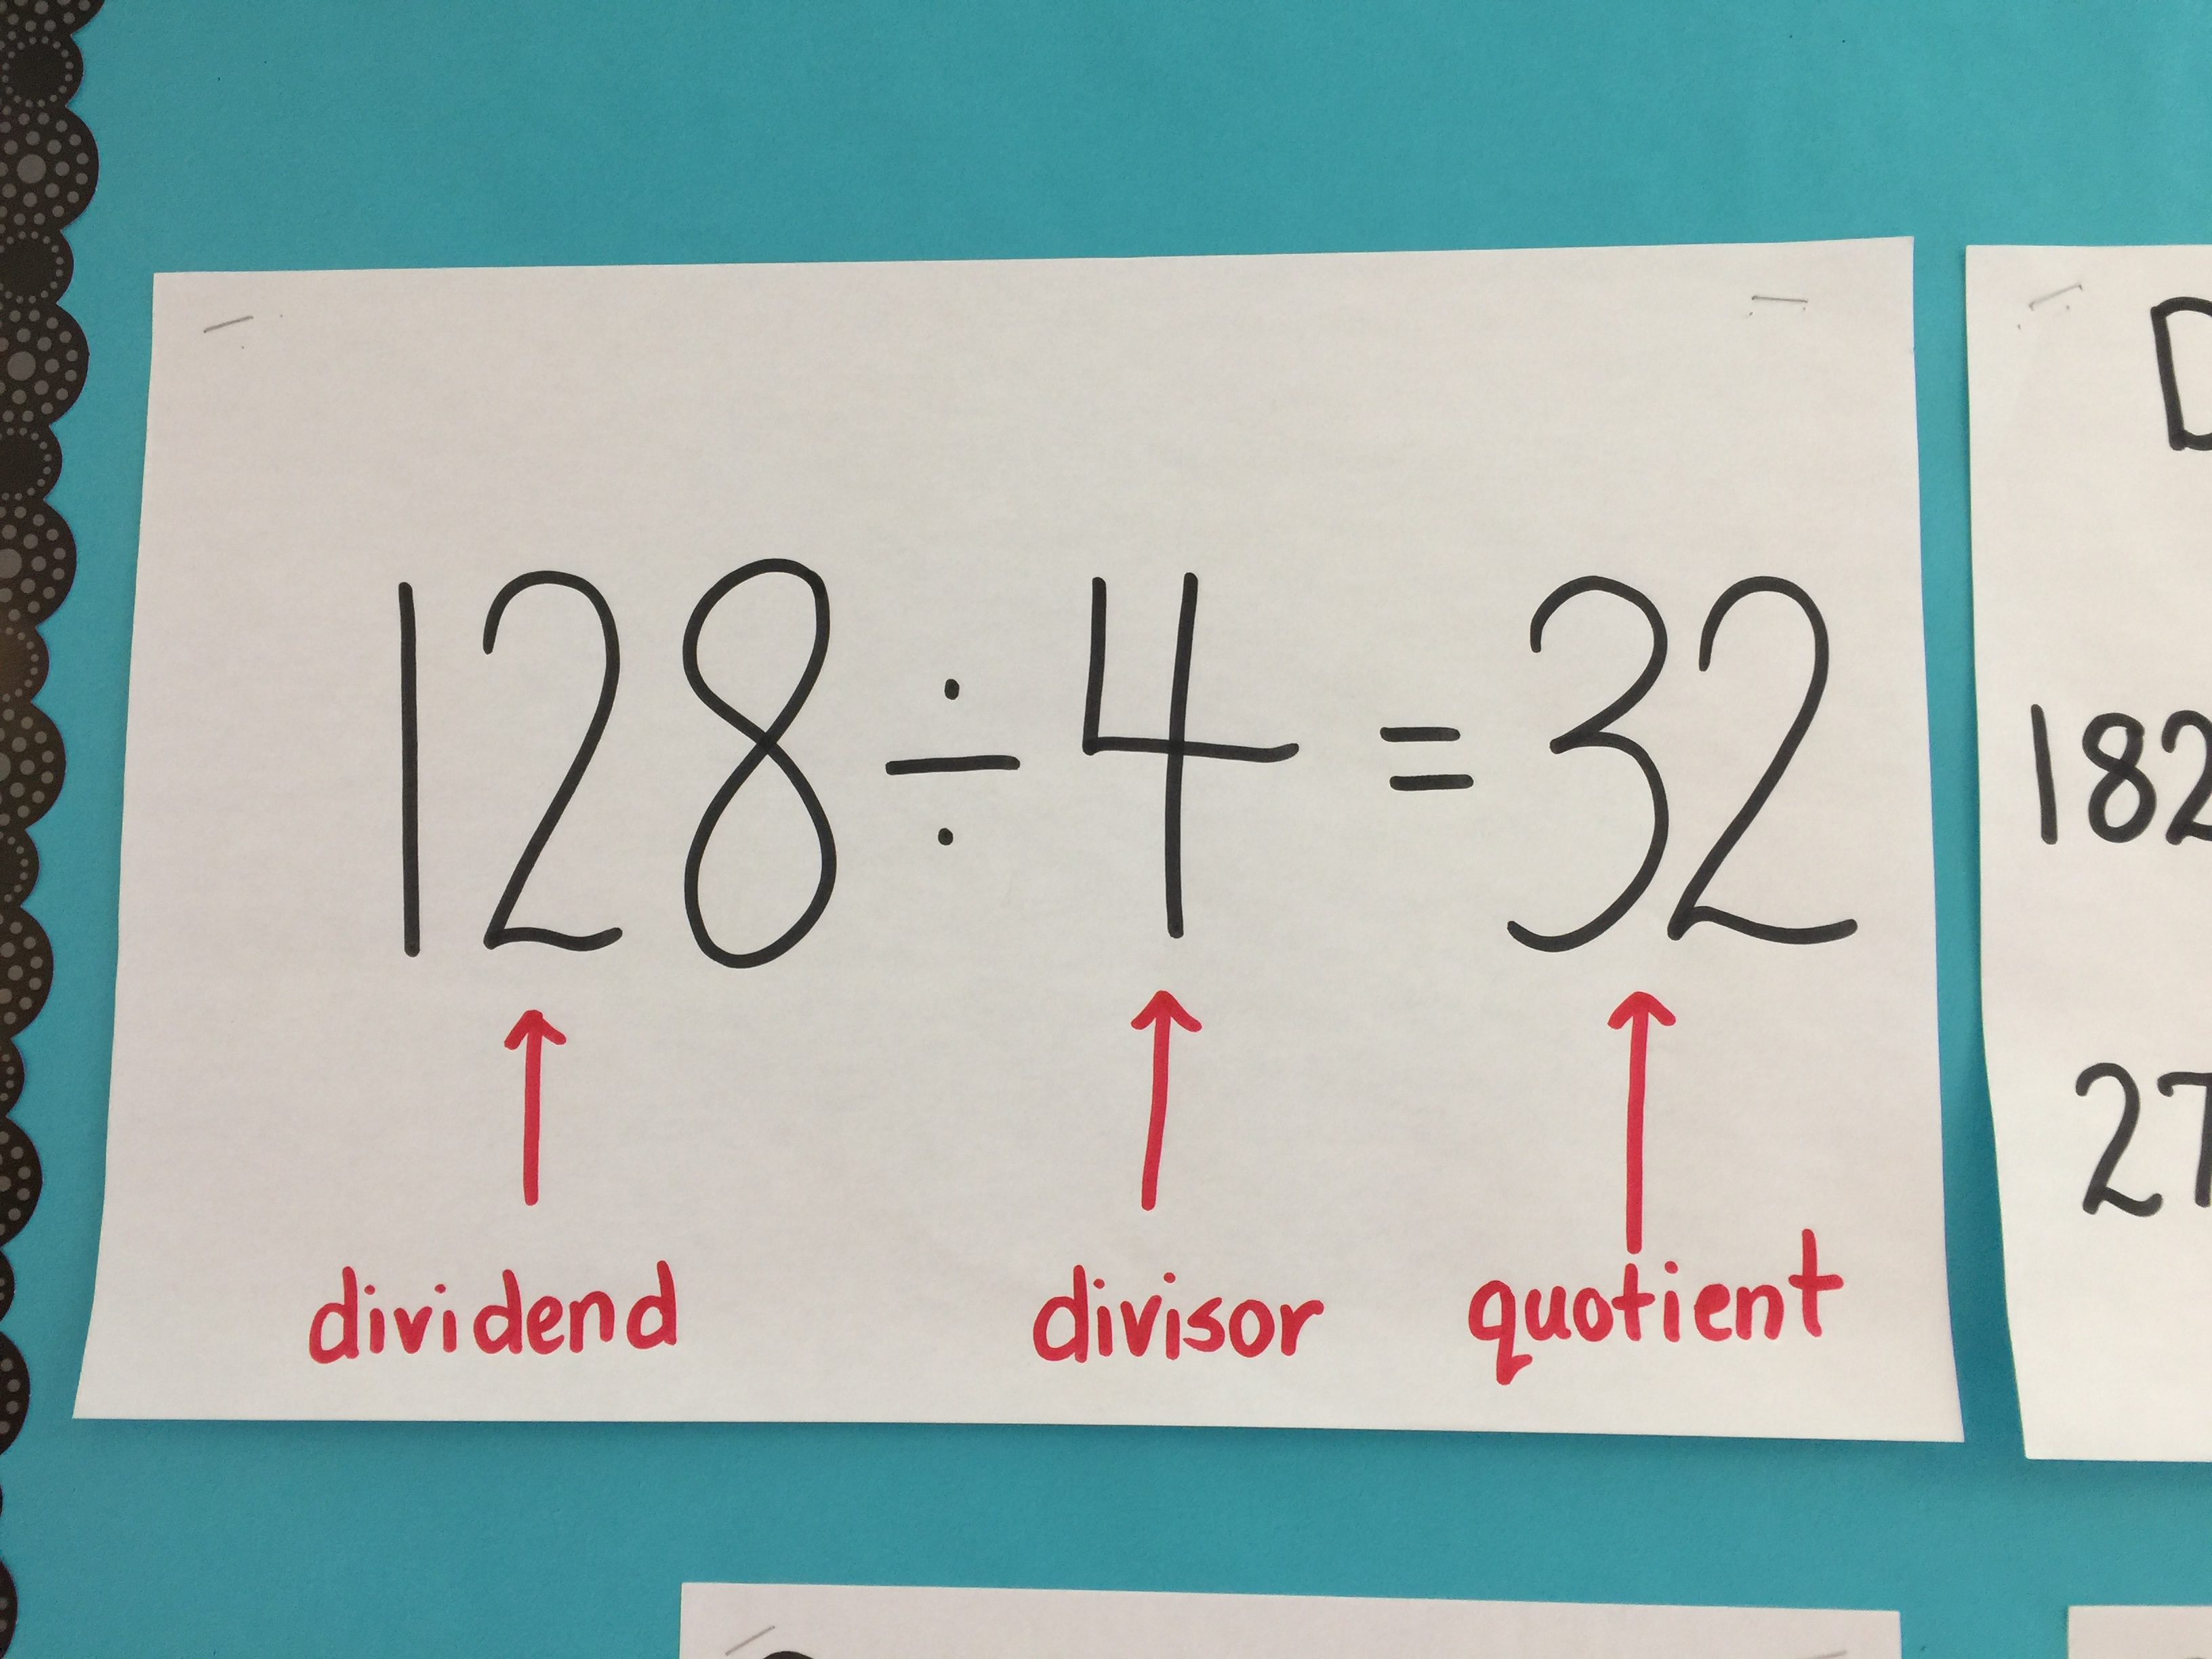 128 ÷ 4 = 32
dividend divisor quotient
D
182
27